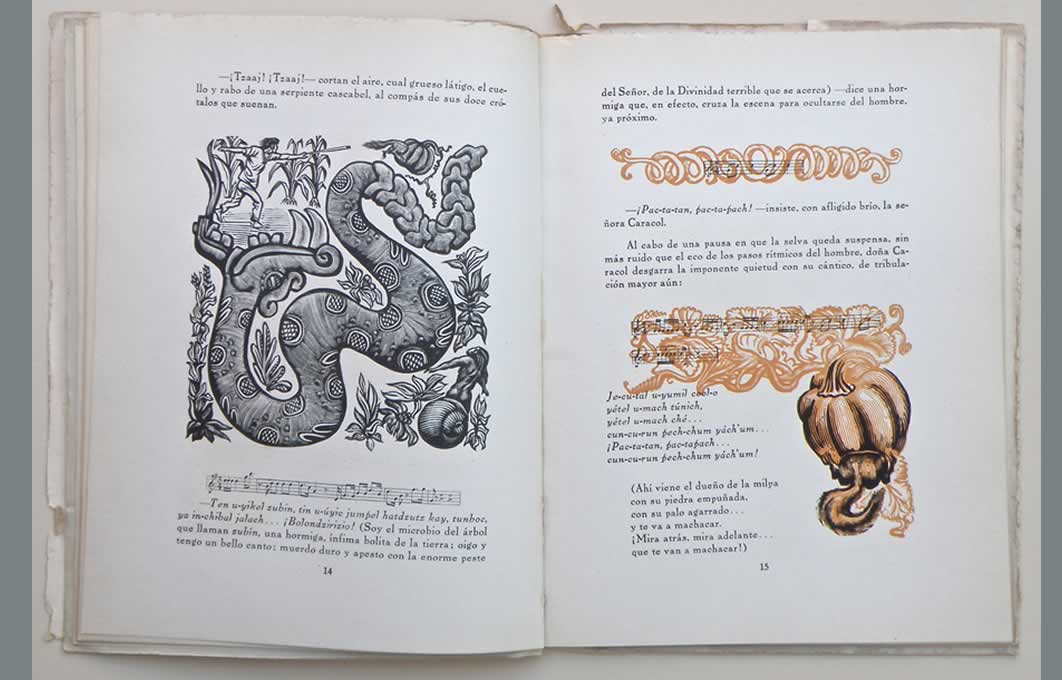 —¡Tzaaj! ¡Tzaaj!— cortan el aire, cual grueso látigo, el cue-
llo y rabo de una serpiente cascabel, al compás de sus doce cró-
talos que suenan.
—Ten u-yikel zubin, tin u-úyic jumpel hatdzutz kay, tunboc,
ya in-chibal jalach... ¡Bolondzirizio! (Soy el microbio del árbol
que llaman zubin, una hormiga, ínfima bolita de la tierra; oigo y
tengo un bello canto; muerdo duro y apesto con la enorme peste
14
del Señor, de la Divinidad terrible que se acerca) —dice una hor-
miga que, en efecto, cruza la escena para ocultarse del hombre,
ya próximo.
—¡Pac-ta-tan, pac-ta-pach! —insiste, con afligido brío, la se-
ñora Caracol.
Al cabo de una pausa en que la selva queda suspensa, sin
más ruido que el eco de los pasos rítmicos del hombre, doña Ca-
racol desgarra la imponente quietud con su cántico, de tribula-
ción mayor aún:
Je-cu-tal u-yumil cool-o
yétel u-mach túnich,
yétel u-mach ché...
cun-cu-run pech-chum yách'um...
¡Pac-ta-tan, pac-tapach...
cun-cu-run pech-chum yách'um!
(Ahí viene el dueño de la milpa
con su piedra empuñada,
con su palo agarrado...
y te va a machacar.
¡Mira atrás, mira adelante...
que te van a machacar!)
15